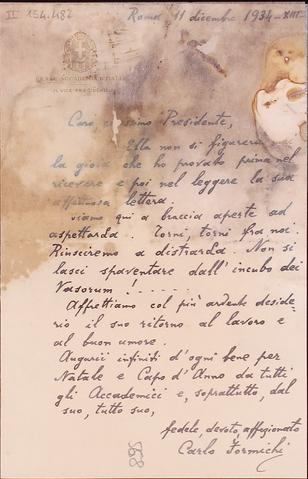 II 154.482
Roma, 11 dicembre 1934-XIII
REALE ACCADEMIA D'ITALIA
IL VICE PRESIDENTE
Caro, carissimo Presidente,
Ella non si figurerà
la gioia che ho provato prima nel
ricevere e poi nel leggere la sua
affettuosa lettera.
Siamo qui a braccia aperte ad
aspettarla. Torni, torni fra noi.
Riusciremo a distrarla. Non si
lasci spaventare dall'incubo dei
Vasorum!......
Affrettiamo col più ardente deside-
rio il suo ritorno al lavoro e
al buon umore.
Augurii infiniti d'ogni bene per
Natale e Capo d'Anno da tutti
gli Accademici e, soprattutto, dal
suo, tutto suo,
fedele, devoto, affezionato
Carlo Formichi